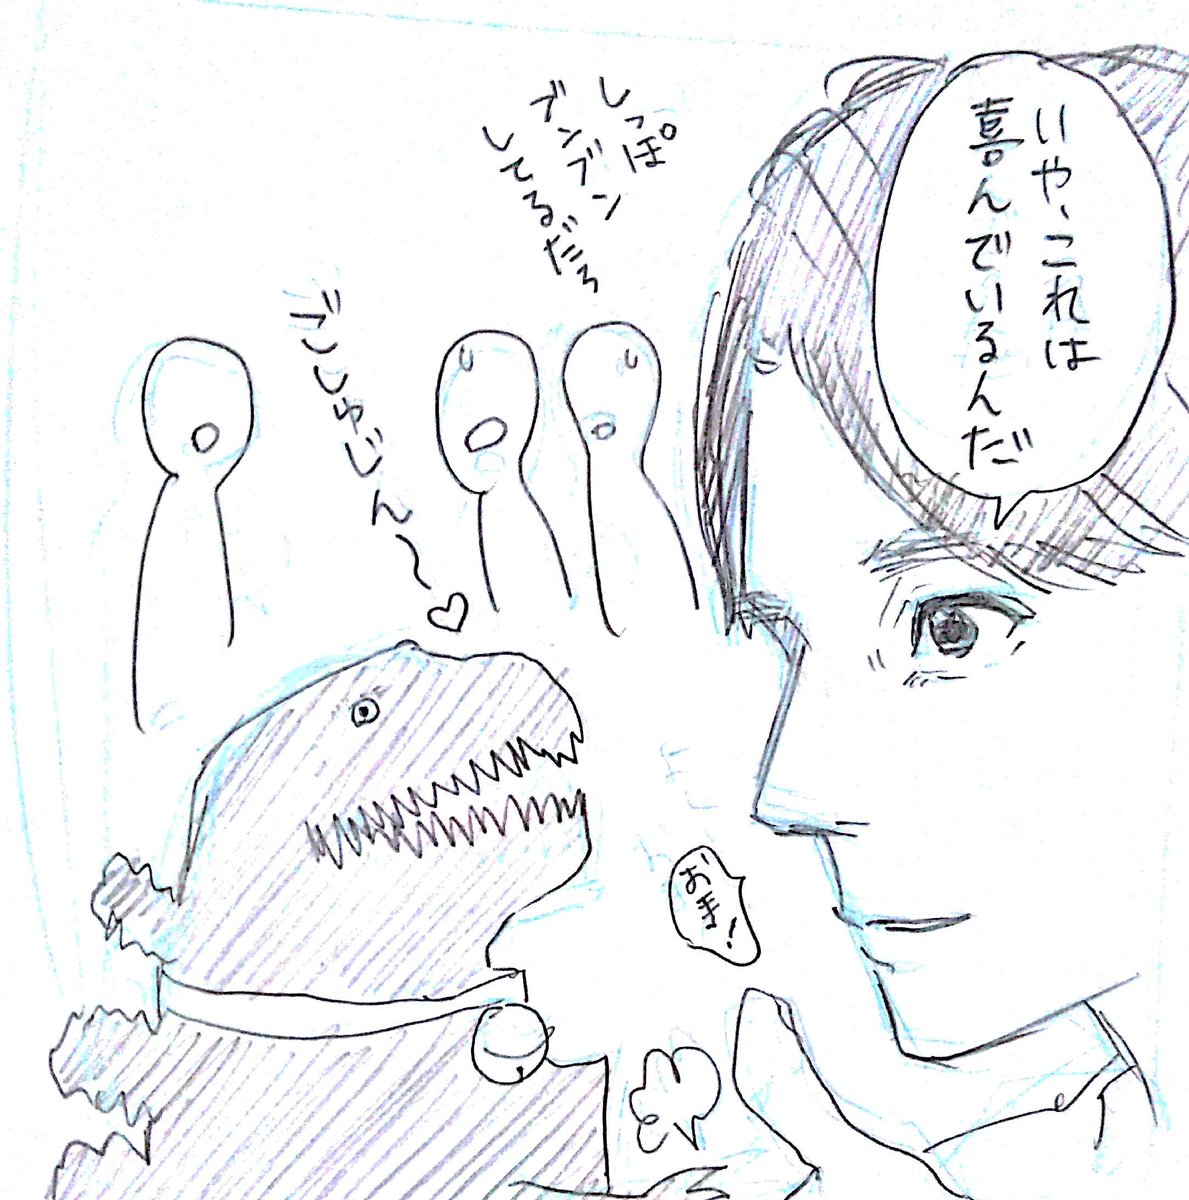 いや、これは
喜んでいるんだ
しっぽ
ブンブン
してるだろ
ごしゅじん〜♡
おす!